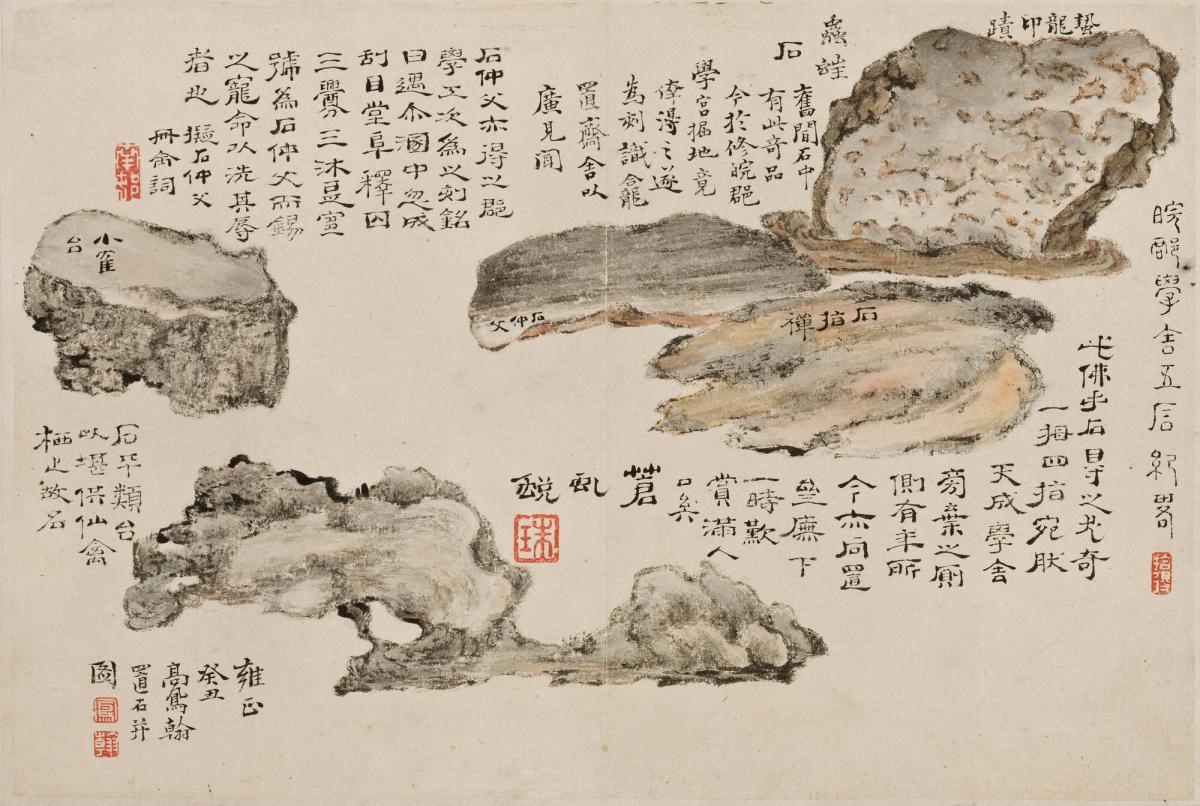 皖郡學舍五石紀畧
蟄龍印蹟
蟲蛀
石
舊聞石中
有此奇品
今於修皖郡
學宮掘地竟
倖得之遂
為刻識龕
置齋舍以
廣見聞
石指禪
此佛手石尋之尤奇
一拇四指宛肰
天成學舍
旁棄之廁
側有年所
今亦同置
廡下
一時歎
賞滿人
口矣
石仲父
石仲父亦得之郡
學工次為以刻銘
曰遇尒溷中忽成
刮目堂阜釋囚
三釁三沐
號為石仲父而錫
以寵命以洗其辱
者也 擬石仲父
冊命詞
蒼
虬
蛻
小雀
台
石平類台
以堪供仙禽
栖止故名
雍正
癸丑
高鳳翰
置石并
圖
鳳
翰